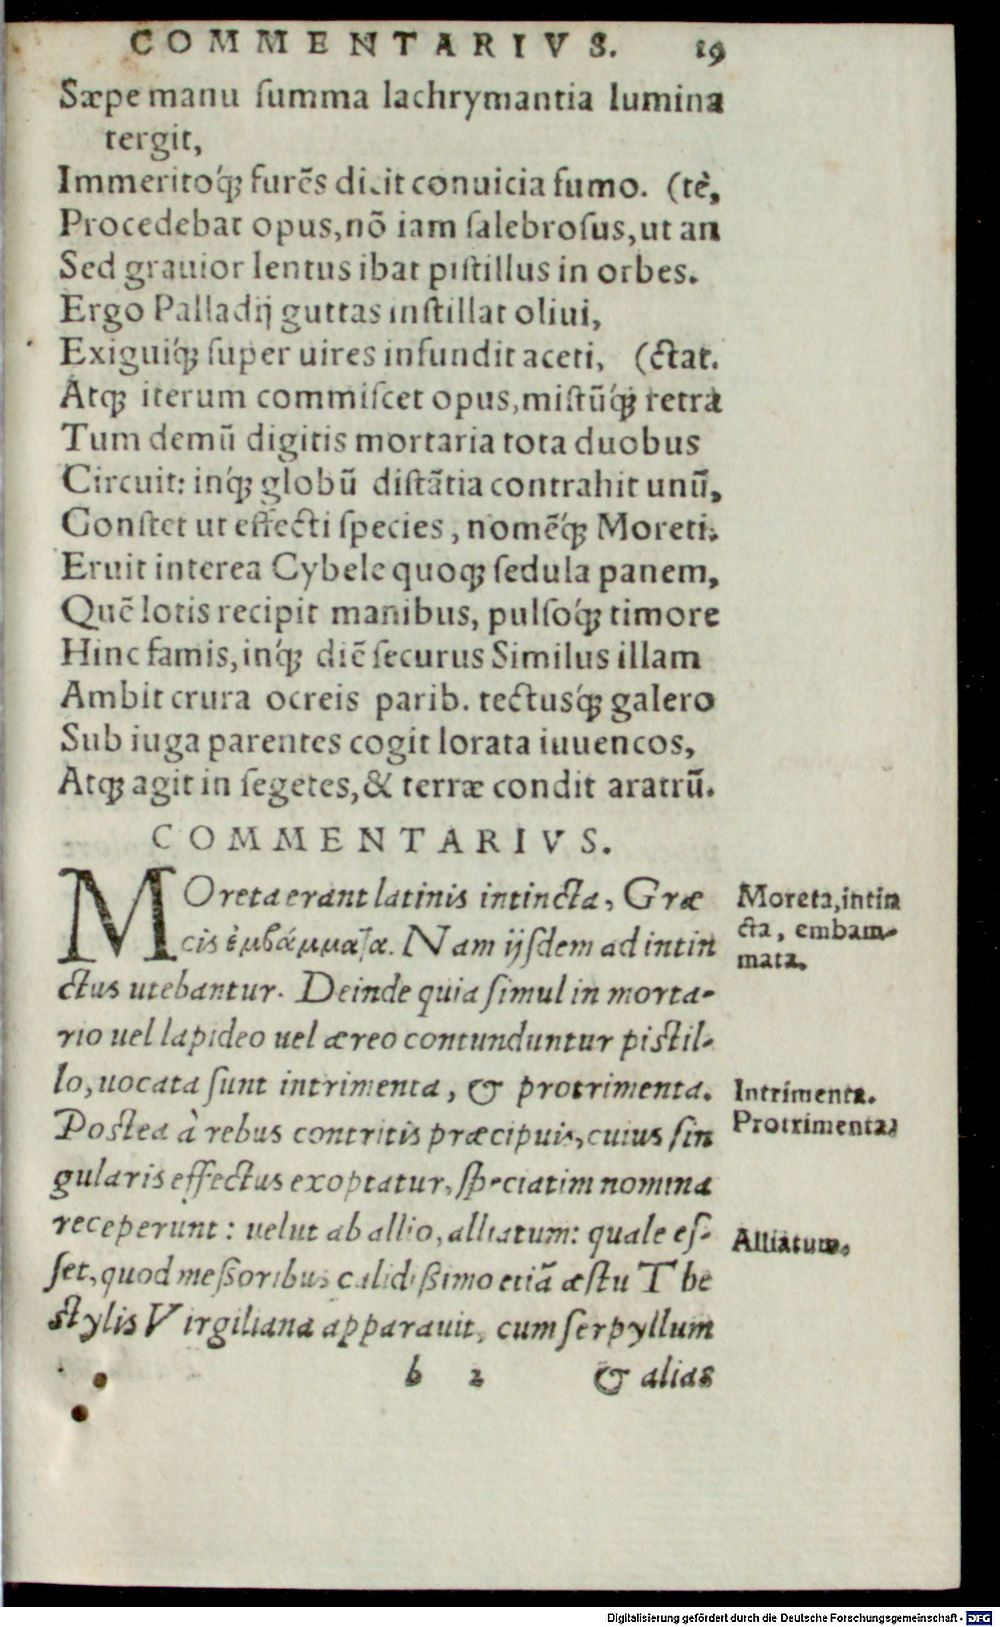 COMMENTARIVS. 19
Sæpe manu ſumma lachrymantia lumina
tergit,
Immeritoq́ꝫ furẽs dicit conuicia fumo. (tè,
Procedebat opus, nõ iam ſalebroſus, ut an
Sed grauior lentus ibat piſtillus in orbes.
Ergo Palladij guttas inſtillat oliui,
Exiguiq́ꝫ ſuper uires infundit aceti, (ctat.
Atqꝫ iterum commiſcet opus, miſtũq́ꝫ retra
Tum demũ digitis mortaria tota duobus
Circuit: inq́ꝫ globũ diſtãtia contrahit unũ,
Conſtet ut effecti ſpecies, nomẽq́ꝫ Moreti.
Eruit interea Cybele quoqꝫ ſedula panem,
Quẽ lotis recipit manibus, pulſoq́ꝫ timore
Hinc famis, inq́ꝫ diẽ ſecurus Similus illam
Ambit crura ocreis parib. tectusq́ꝫ galero
Sub iuga parentes cogit lorata iuuencos,
Atqꝫ agit in ſegetes, & terræ condit aratrũ.
COMMENTARIVS.
MOreta erant latinis intincta, Græ
cis ἐμβάμματα. Nam ijſdem ad intin
ctus utebantur. Deinde quia ſimul in morta-
rio uel lapideo uel æreo contunduntur piſtil-
lo, uocata ſunt intrimenta, & protrimenta.
Poſtea à rebus contritis præcipuis, cuius ſin
gularis effectus exoptatur, ſpeciatim nomina
receperunt: uelut ab allio, alliatum: quale eſ-
ſet, quod meſſoribus calidiſſimo etiã æſtu The
ſtylis Virgiliana apparauit, cum ſerpyllum
b 2 & alias
Moreta, intin
cta, embam-
mata.
Intrimenta.
Protrimenta.
Alliatum.
Digitalisierung gefördert durch die Deutsche Forschungsgemeinschaft - DFG